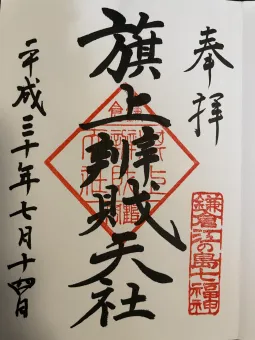 奉拝
旗上辨財天社
平成三十年七月十四日
鎌倉江の島七福神